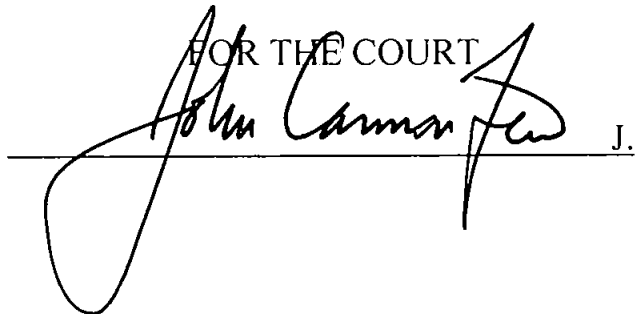 FOR THE COURT
John Cannon Few J.